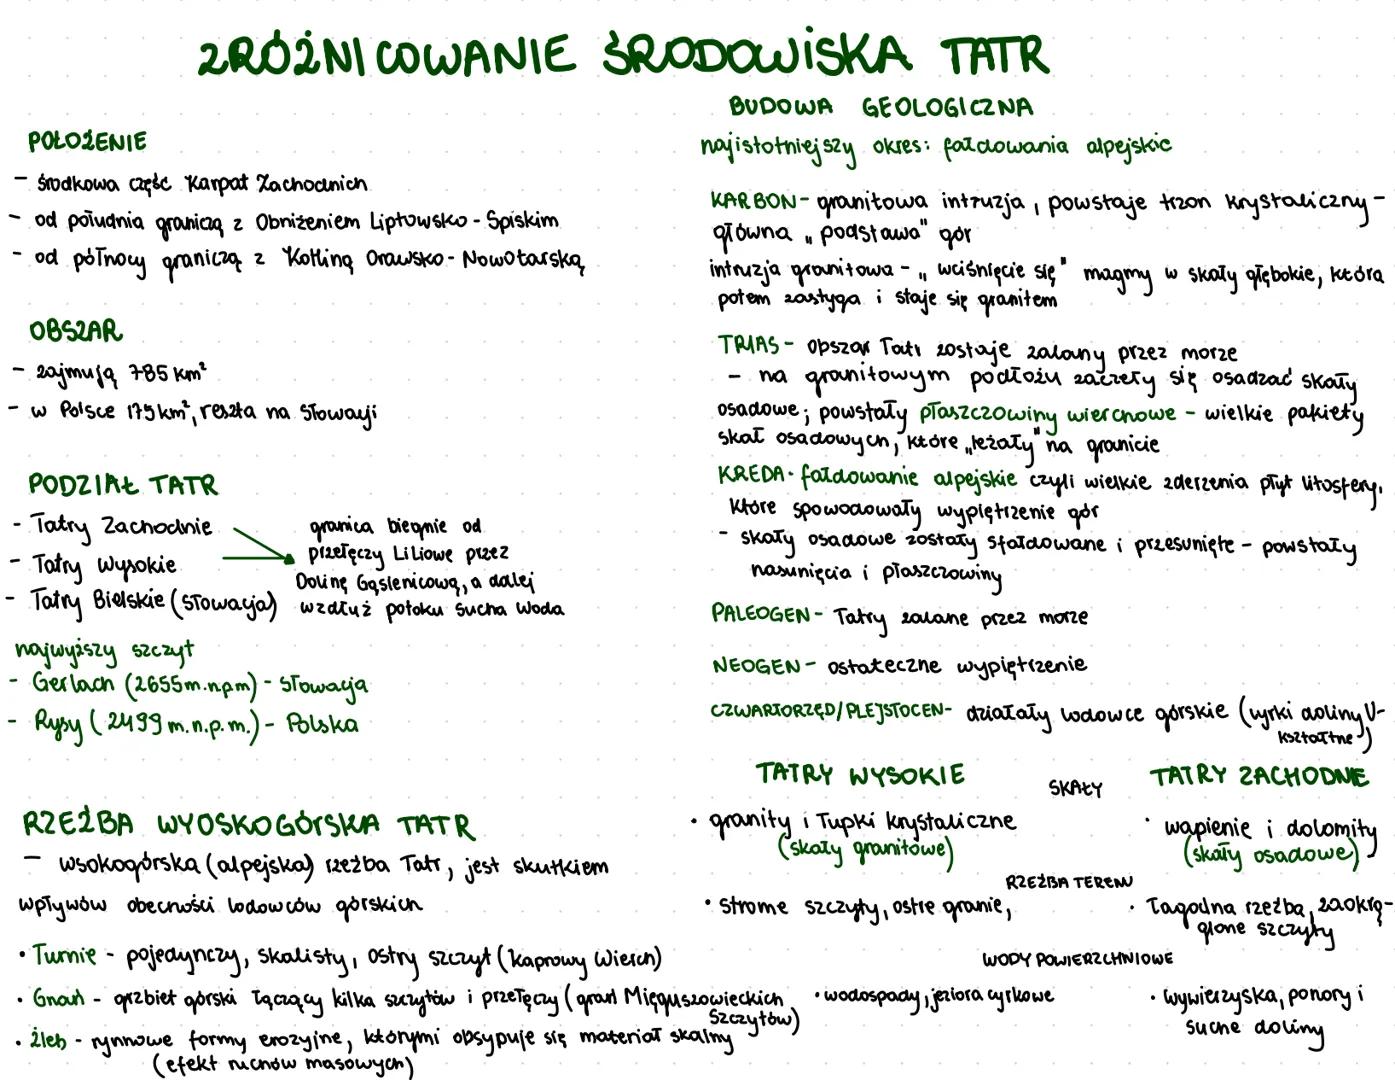 ZRÓŻNICOWANIE ŚRODOWISKA TATR
POŁOŻENIE
- środkowa część Karpat Zachodnich
- od południa graniczą z Obniżeniem Liptowsko - Spiskim
- od północy graniczą z Kotliną Orawsko - Nowotarską
OBSZAR
- zajmują 785 km²
- w Polsce 175 km², reszta na Słowacji
PODZIAŁ TATR
- Tatry Zachodnie
- Tatry Wysokie
- Tatry Bielskie (Słowacja)
granica biegnie od
przełęczy Liliowe przez
Dolinę Gąsienicową, a dalej
wzdłuż potoku Sucha Woda
najwyższy szczyt
- Gerlach (2655m.n.p.m) - Słowacja
- Rysy (2499 m.n.p.m.) - Polska
RZEŹBA WYOSKOGÓRSKA TATR
- wsokogórska (alpejska) rzeźba Tatr, jest skutkiem
wpływów obecności lodowców górskich
• Turnie - pojedynczy, skalisty, ostry szczyt (Kaprowy Wierch)
• Grań - grzbiet górski łączący kilka szczytów i przełęczy (grań Mięguszowieckich
Szczytów)
• Żleb - rynnowe formy erozyjne, którymi obsypuje się materiał skalny
(efekt ruchów masowych)
BUDOWA GEOLOGICZNA
najistotniejszy okres: fałdowania alpejskie
KARBON - granitowa intruzja, powstaje trzon krystaliczny -
główna „podstawa" gór
intruzja granitowa - „wciśnięcie się" magmy w skały głębokie, która
potem zastyga i staje się granitem
TRIAS - obszar Tatr zostaje zalany przez morze
- na granitowym podłożu zaczęły się osadzać skały
osadowe; powstały płaszczowiny wierchowe - wielkie pakiety
skał osadowych, które „leżały" na granicie
KREDA - fałdowanie alpejskie czyli wielkie zderzenia płyt litosfery,
które spowodowały wypiętrzenie gór
- skały osadowe zostały sfałdowane i przesunięte - powstały
nasunięcia i płaszczowiny
PALEOGEN - Tatry zalane przez morze
NEOGEN - ostateczne wypiętrzenie
CZWARTORZĘD/PLEJSTOCEN - działały lodowce górskie (wyrki doliny U-
kształtne)
TATRY WYSOKIE
SKAŁY
TATRY ZACHODNIE
• granity i łupki krystaliczne
(skały granitowe)
• wapienie i dolomity
(skały osadowe)
RZEŹBA TERENU
• strome szczyty, ostre granie,
• łagodna rzeźba, zaokrą-
glone szczyty
WODY POWIERZCHNIOWE
• wodospady, jeziora cyrkowe
• wywierzyska, ponory i
suche doliny